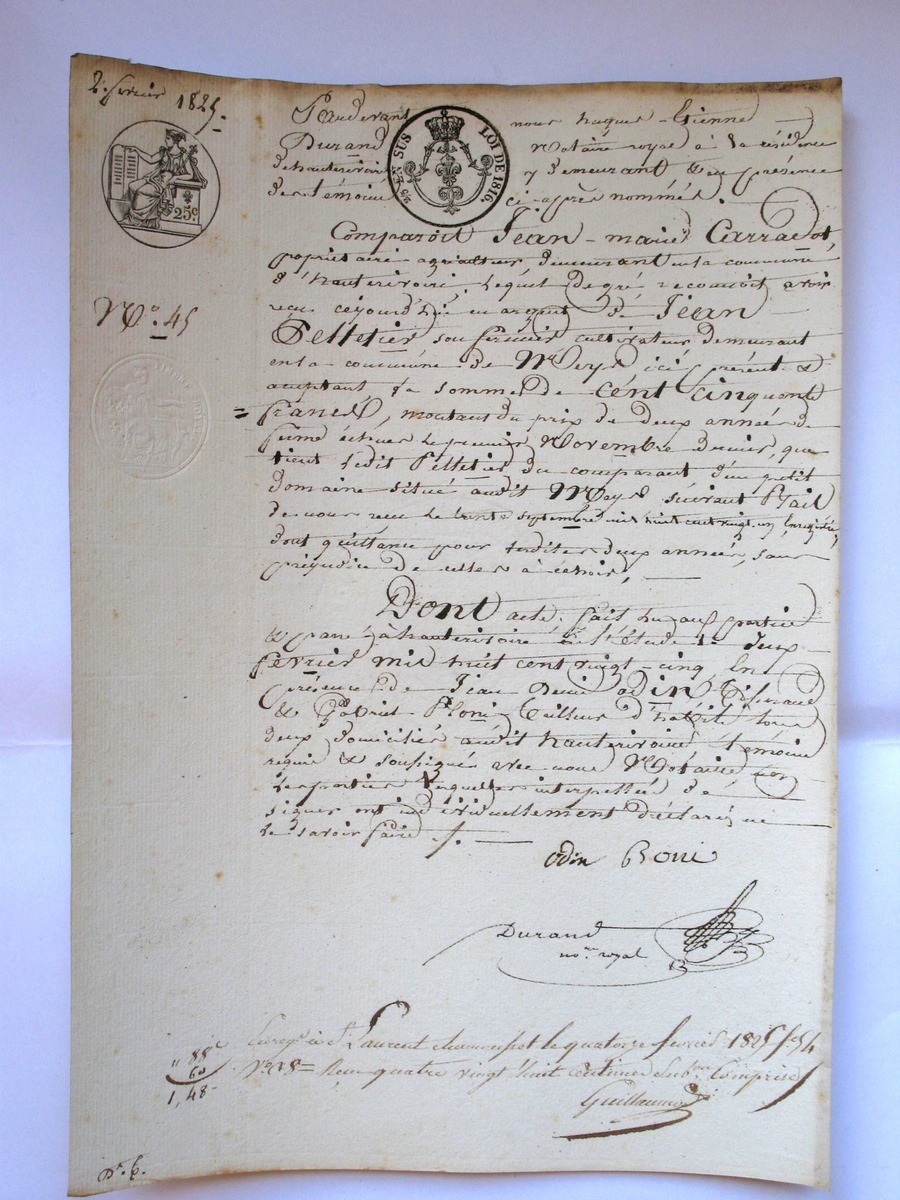 2. février 1825
25 c
25 EN SUS LOI DE 1816
Pardevant nous hugues-Etienne
Durand Notaire royal à la résidence
dehauterivoire y demeurant & en présence
des témoins ci-après nommés.
Comparoît Jean-marie
propriétaire agriculteur demeurant en la commune
d'hauterivoire, Lequel de gré reconnoit avoir
reçu cejourd'hui en argent de Jean
Pelletier son fermier cultivateur demeurant
en la commune de Meys ici présent &
acceptant la somme de cent cinquante
francs, montant du prix de deux années de
ferme échues Le premier Novembre dernier, que
tient Ledit Pelletier du comparant d'un petit
domaine situé audit Meys suivant Bail
de nous reçu Le trente septembre mil huit cent vingt un, Enregistré,
dont quittance pour lesdites deux années, sans
préjudice de celles à échoir,
Dont acte, fait lu aux parties
& passé à hauterivoire en l'étude Le deux
février mil huit cent vingt-cinq En
présence de Jean odin
& Gabriel Tailleur d'habit tous
deux domiciliés audit hauterivoire témoins
requis & soussignés avec nous Notaire non
Les parties Lesquelles interpellées de
signer ont individuellement déclaré ne
Le savoir faire
N.o 45
odin Roni
Durand
no.re royal
Enreg. à St Laurent chamousset le quatorze février 1825 f.o 54
Reçu quatre vingt huit centimes sub.on Comprise
Guillaumot
" 88 c
60
1,48